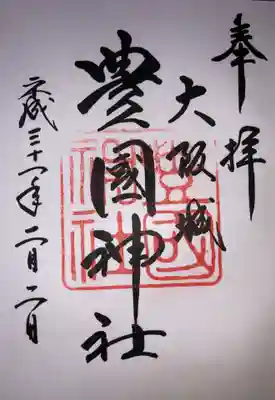 奉拝
大阪城
豊國神社
平成三十一年二月二日
豊國神社